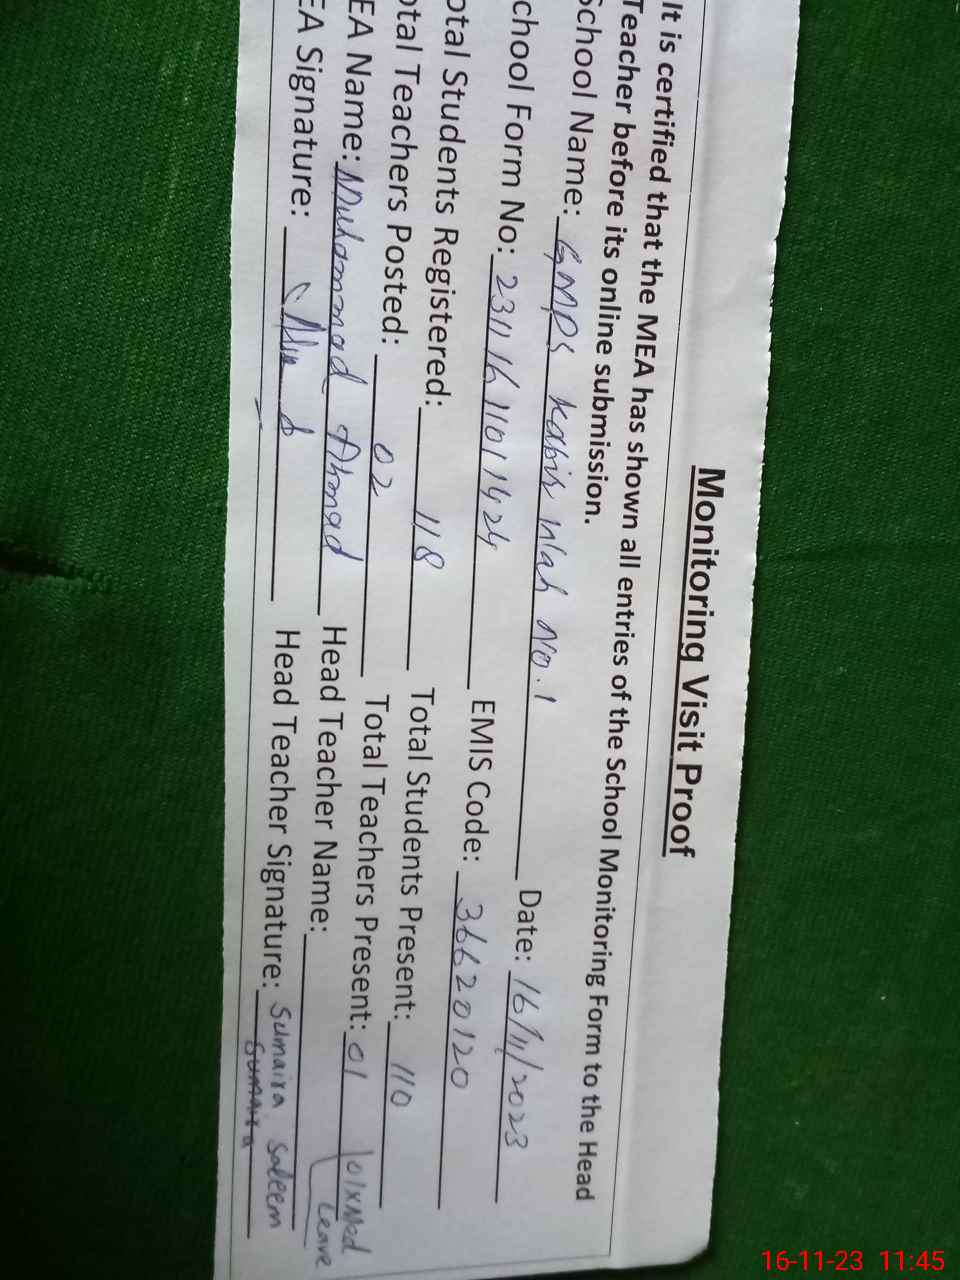 Monitoring Visit Proof
It is certified that the MEA has shown all entries of the School Monitoring Form to the Head
Teacher before its online submission.
School Name: GMPS Kabir Wah No.1 Date: 16/11/2023
chool Form No: 23111611011424 EMIS Code: 36620120
otal Students Registered: 118 Total Students Present: 110
otal Teachers Posted: 02 Total Teachers Present: 01 01xMed Leave
EA Name: Muhammad Ahmad Head Teacher Name: Sumaira Saleem
EA Signature: Head Teacher Signature: Sumaira
16-11-23 11:45